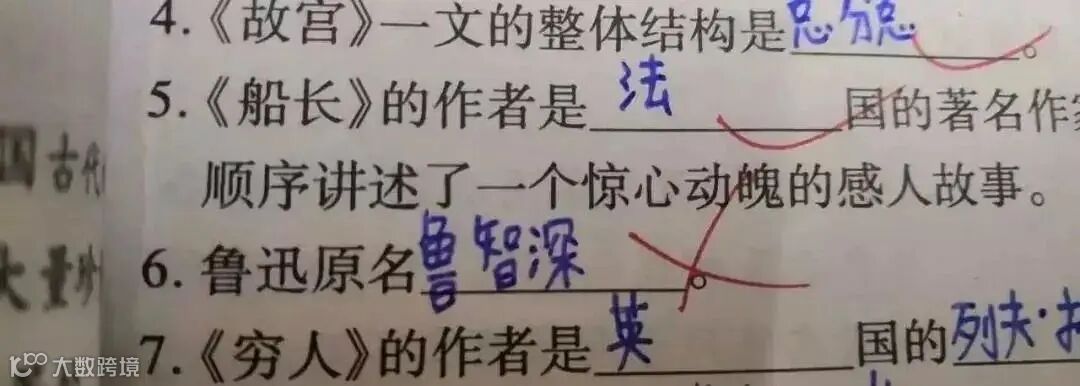 4.《故宫》一文的整体结构是总分总。
5.《船长》的作者是法国的著名作
顺序讲述了一个惊心动魄的感人故事。
国古代
6. 鲁迅原名鲁智深。
大量
7.《穷人》的作者是英国的列夫·
大数跨境